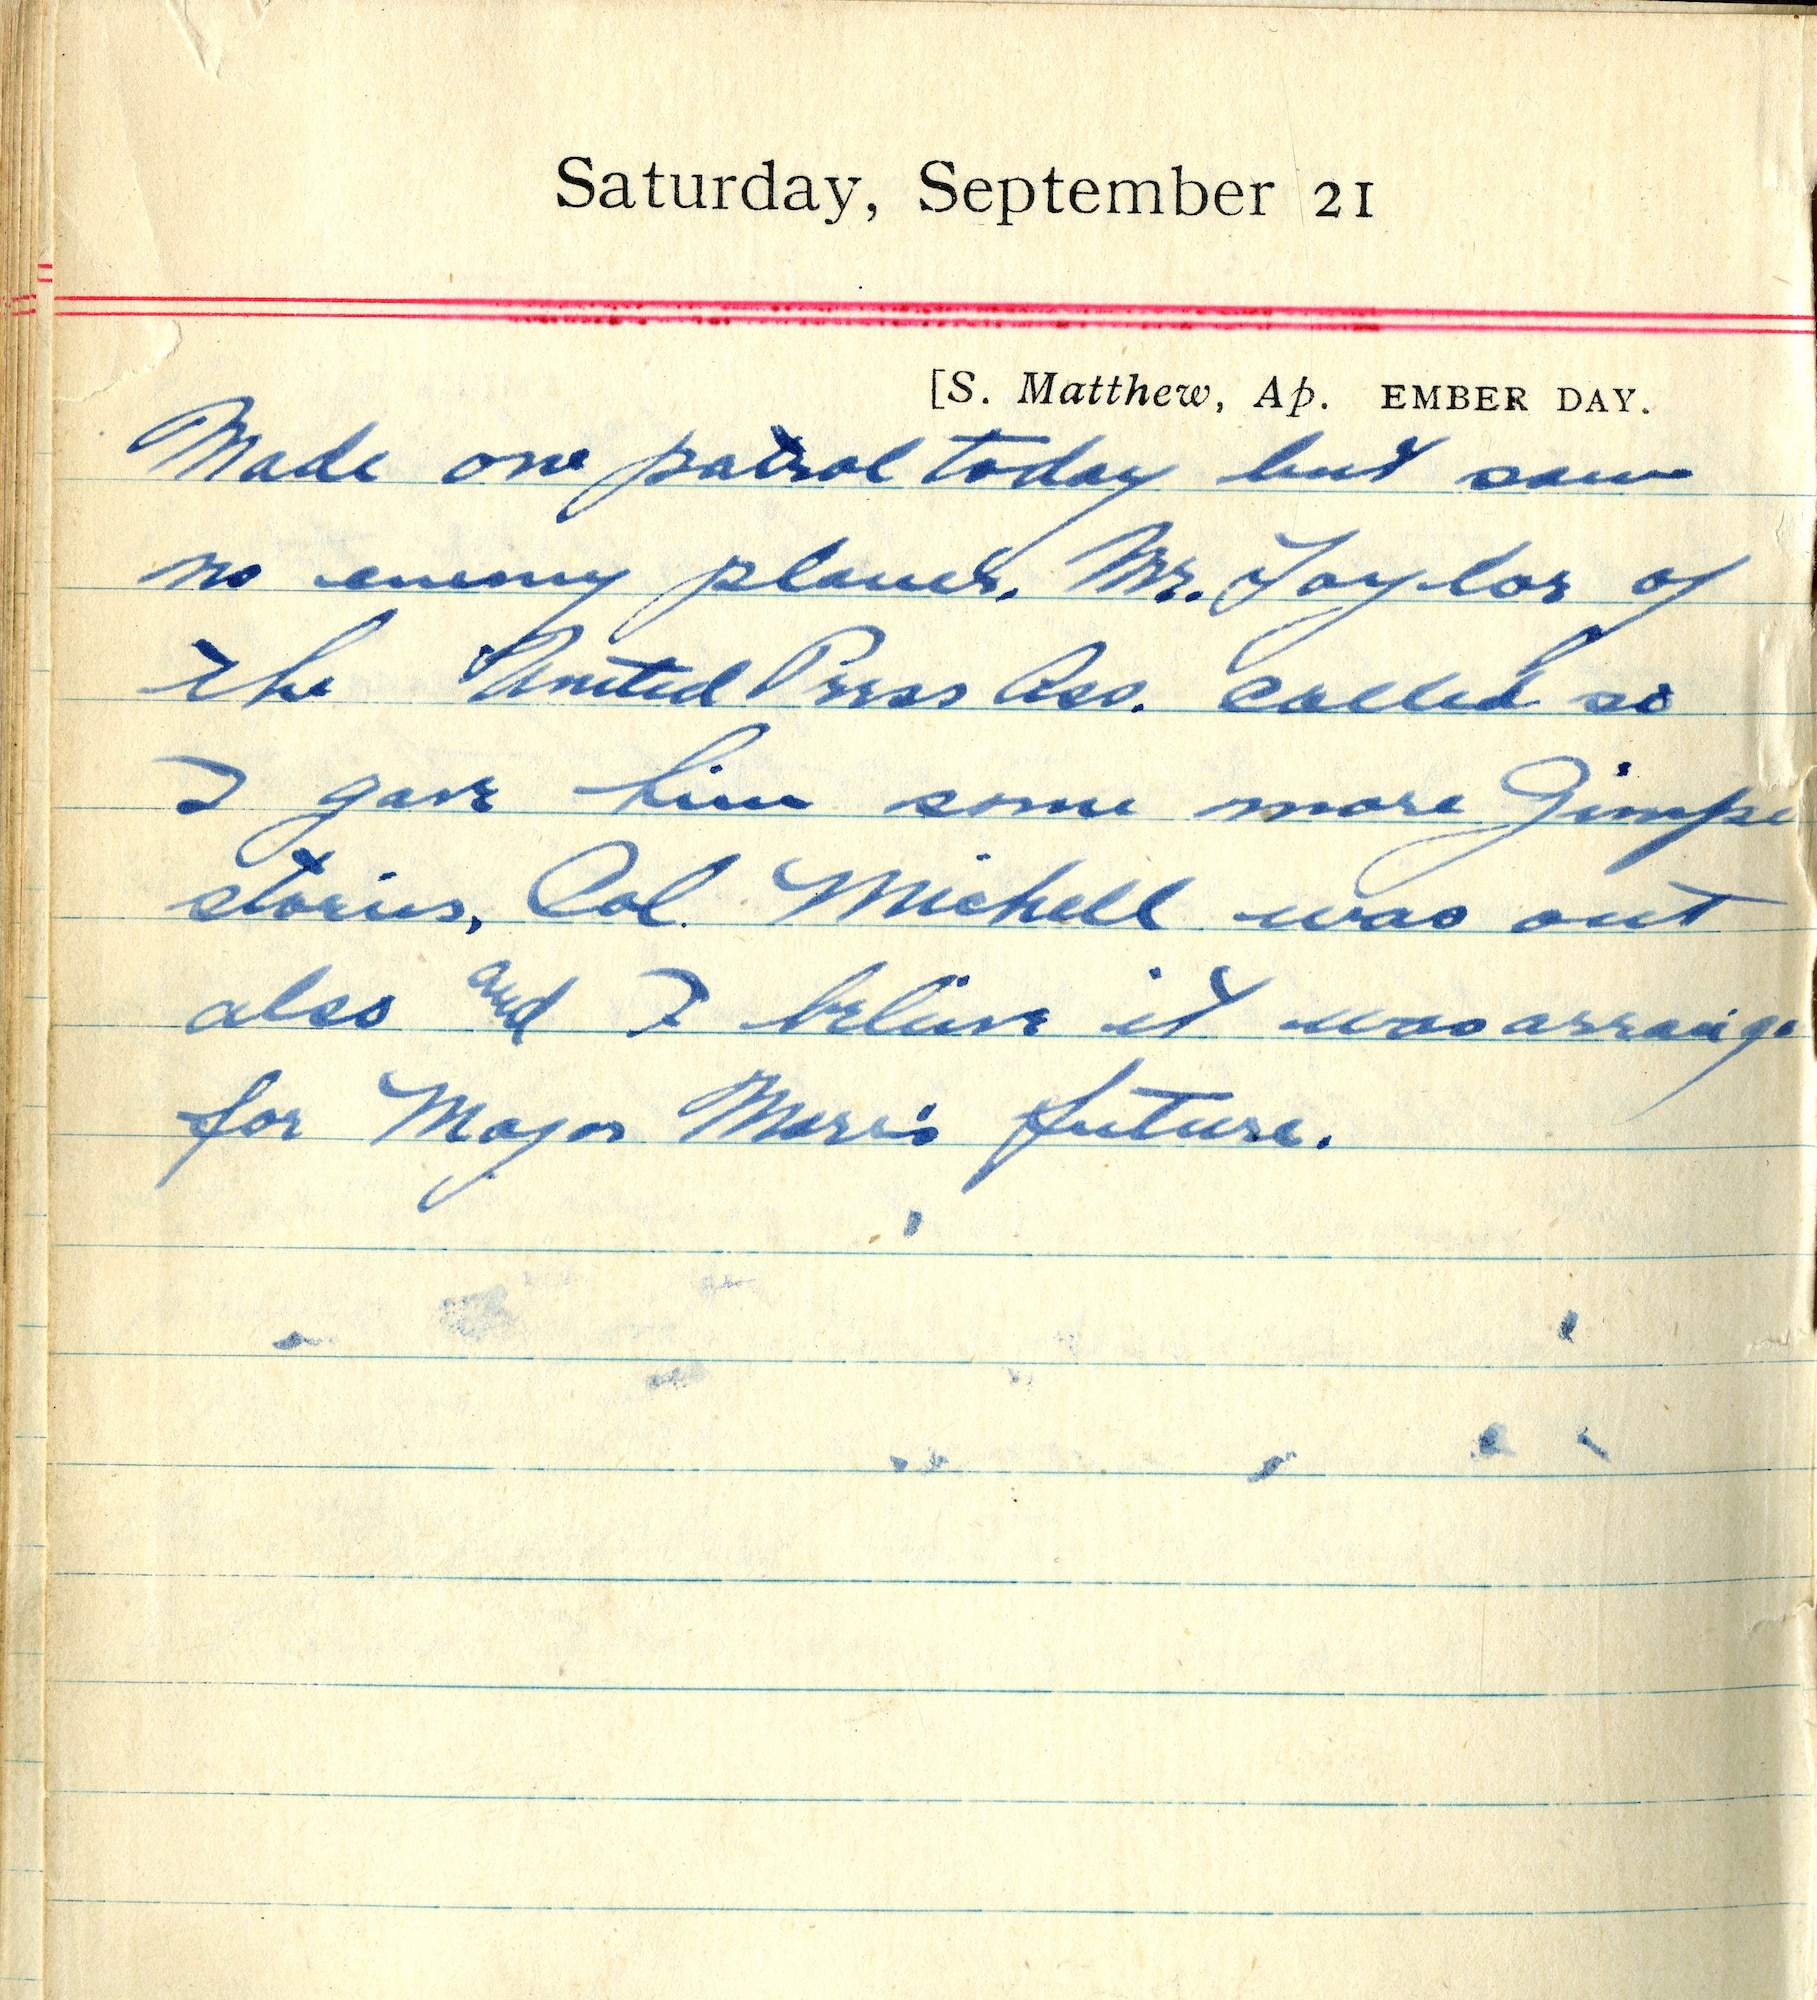 Saturday, September 21
[S. Matthew, Ap. EMBER DAY.
Made one patrol today but saw
no enemy planes. Mr. Taylor of
the United Press Ass. called so
I gave him some more Gimpe
stories, Col. Michell was out
also and I believe it was arrange
for Major Marr's future.